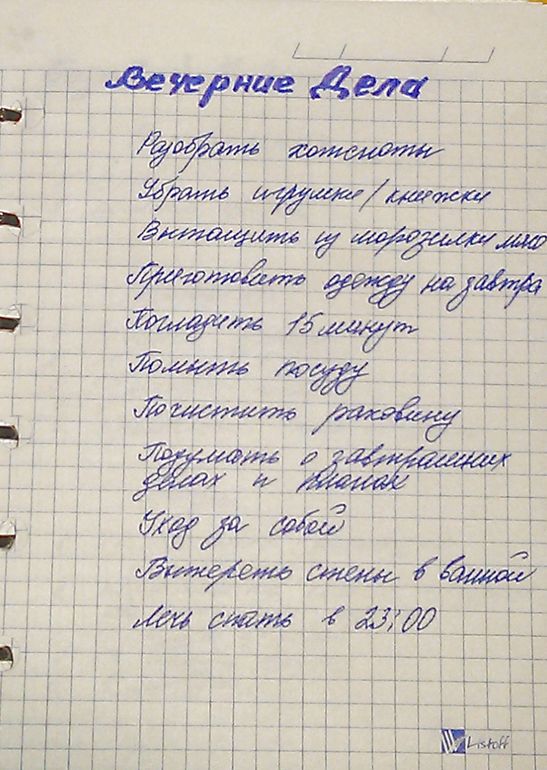 Вечерние Дела
Разобрать хотспоты
Убрать игрушки/книжки
Вытащить из морозилки мясо
Приготовить одежду на завтра
Погладить 15 минут
Помыть посуду
Почистить раковину
Подумать о завтрашних
делах и планах
Уход за собой
Вытереть стены в ванной
Лечь спать в 23:00
Listoff